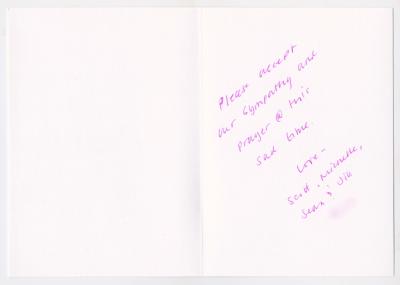 Please accept
our sympathy and
prayer @ this
sad time.
Love-
Scott, Michelle,
Sean & Jill